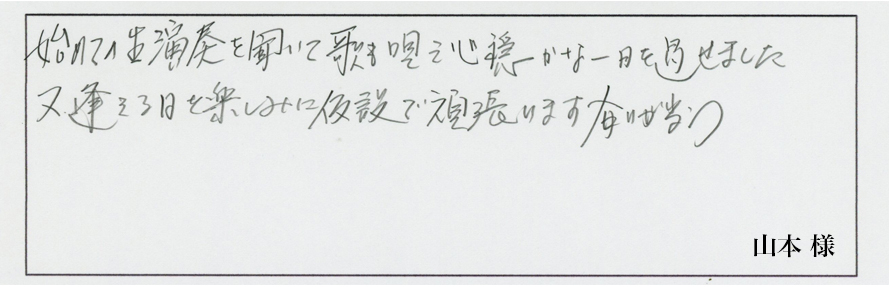 始めての生演奏を聞いて歌も唄え心穏かな一日を過せました
又逢える日を楽しみに仮設で頑張ります有りが当う
山本 様